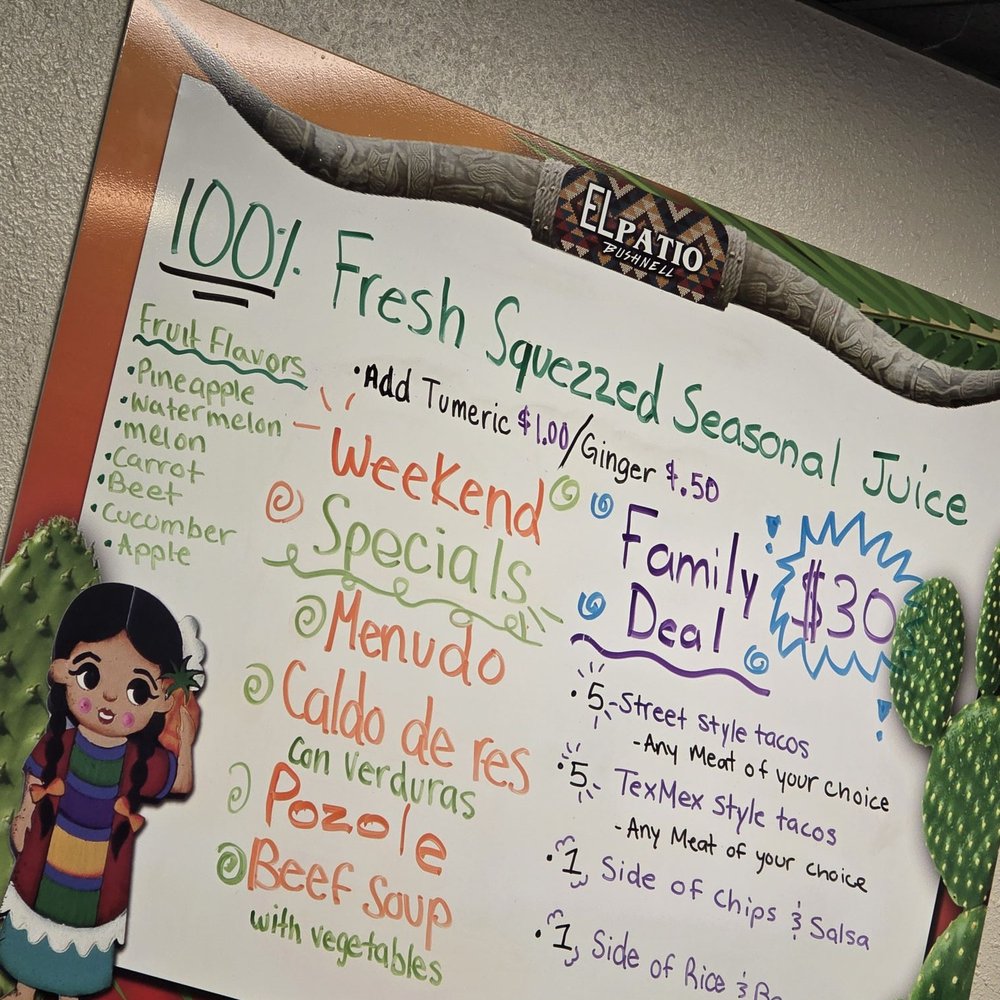 EL PATIO
BUSHNELL
100% Fresh Squezzed Seasonal Juice
• Add Tumeric $1.00/Ginger $.50
Fruit Flavors
• Pineapple
• Watermelon
• melon
• Carrot
• Beet
• Cucumber
• Apple
Weekend
Specials
Menudo
Caldo de res
con verduras
Pozole
Beef Soup
with vegetables
Family
Deal
$30
• 5 - Street style tacos
- Any Meat of your choice
• 5 - TexMex style tacos
- Any Meat of your choice
• 1, Side of Chips & Salsa
• 1, Side of Rice &